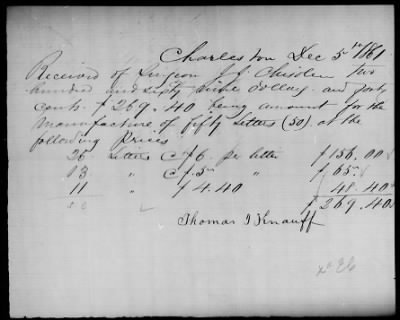 Charleston Dec 5th 1861
Received of Surgeon J. J. Chisolm two
hundred and sixty nine dollars and forty
cents $269.40 being amount for the
manufacture of fifty Litters (50) at the
following Prices
26 Litters @ $6. per litter $156.00
13 " @ $5. " $65.
11 " $4.40 48.40
50 $269.40
Thomas J Knauff